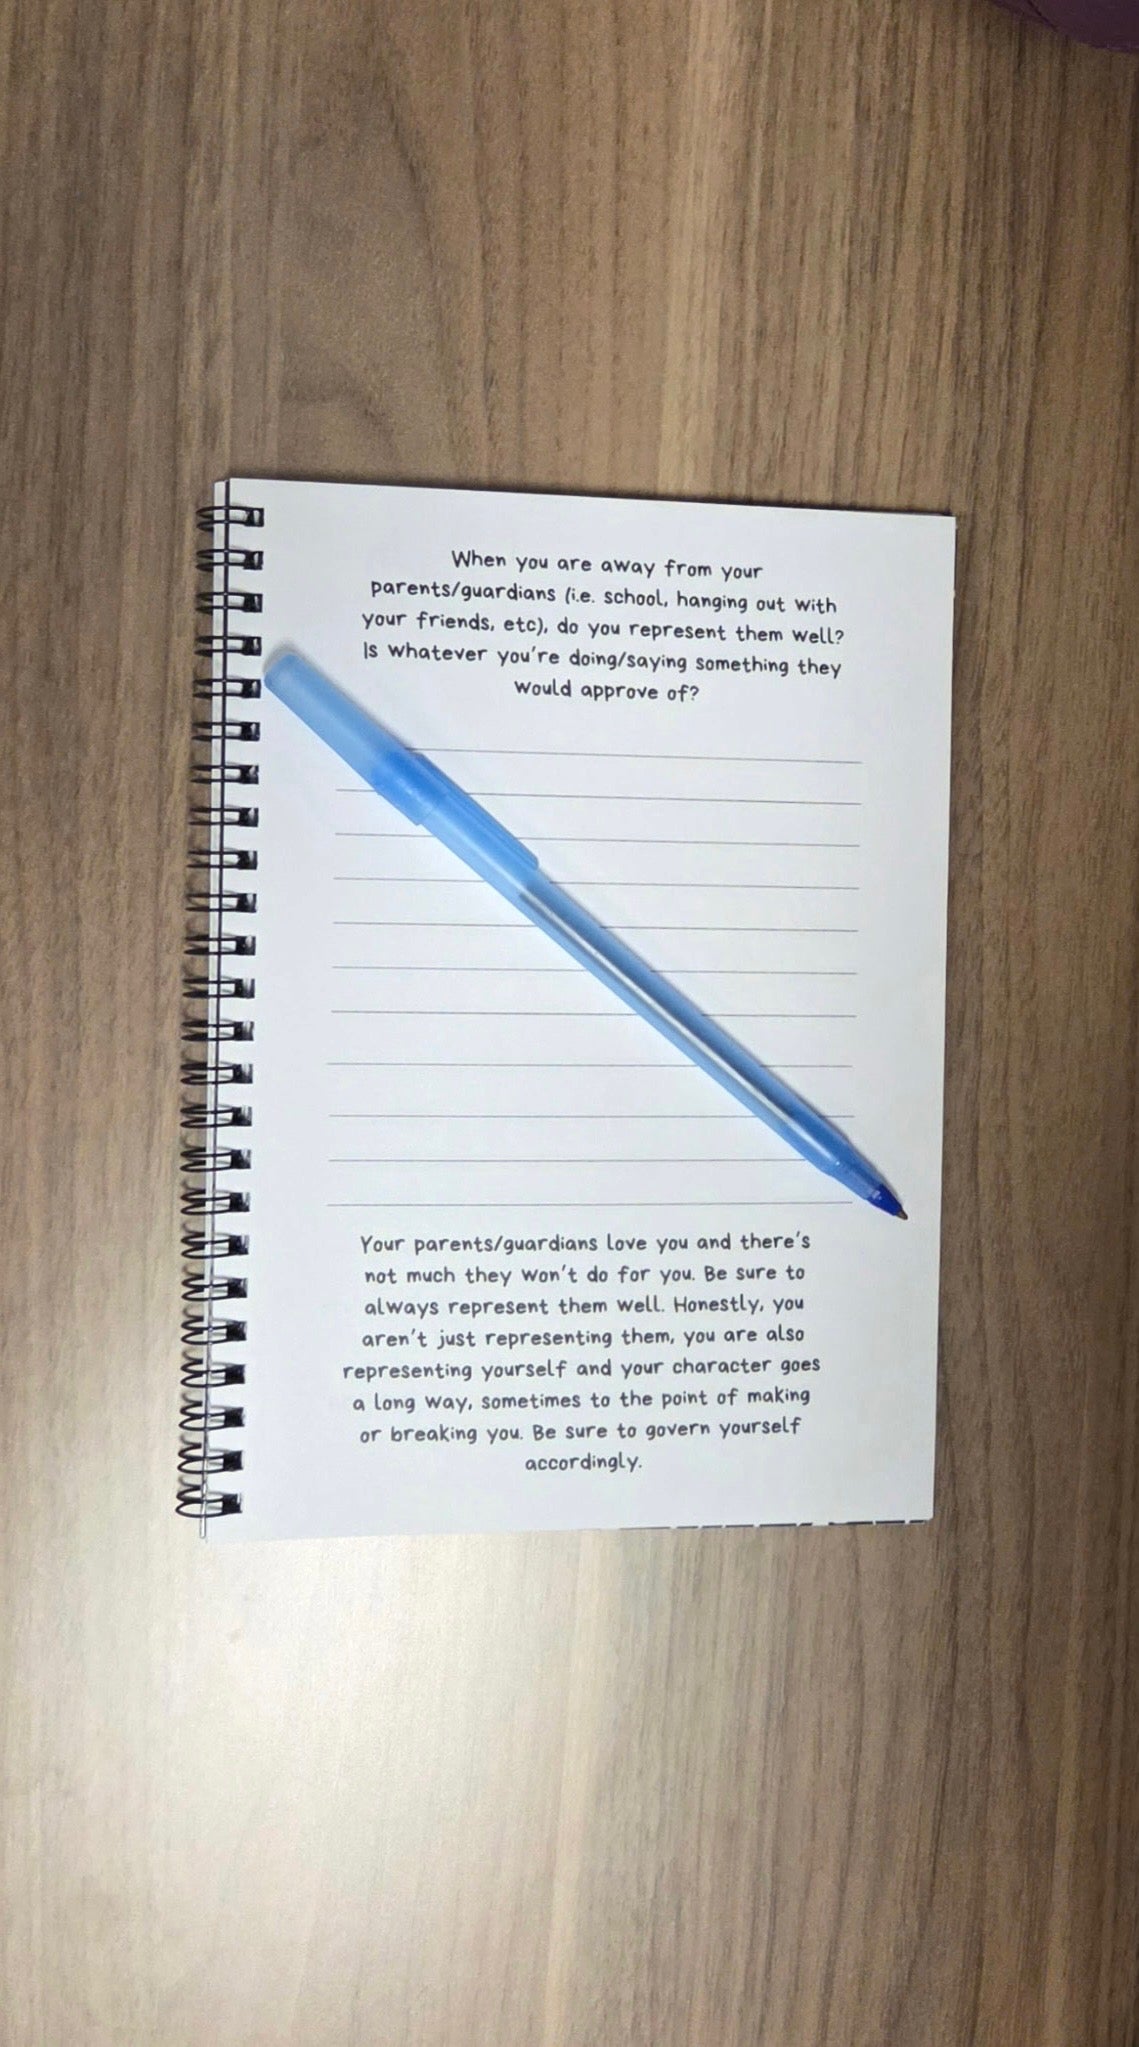 When you are away from your
parents/guardians (i.e. school, hanging out with
your friends, etc), do you represent them well?
Is whatever you're doing/saying something they
would approve of?
Your parents/guardians love you and there's
not much they won't do for you. Be sure to
always represent them well. Honestly, you
aren't just representing them, you are also
representing yourself and your character goes
a long way, sometimes to the point of making
or breaking you. Be sure to govern yourself
accordingly.